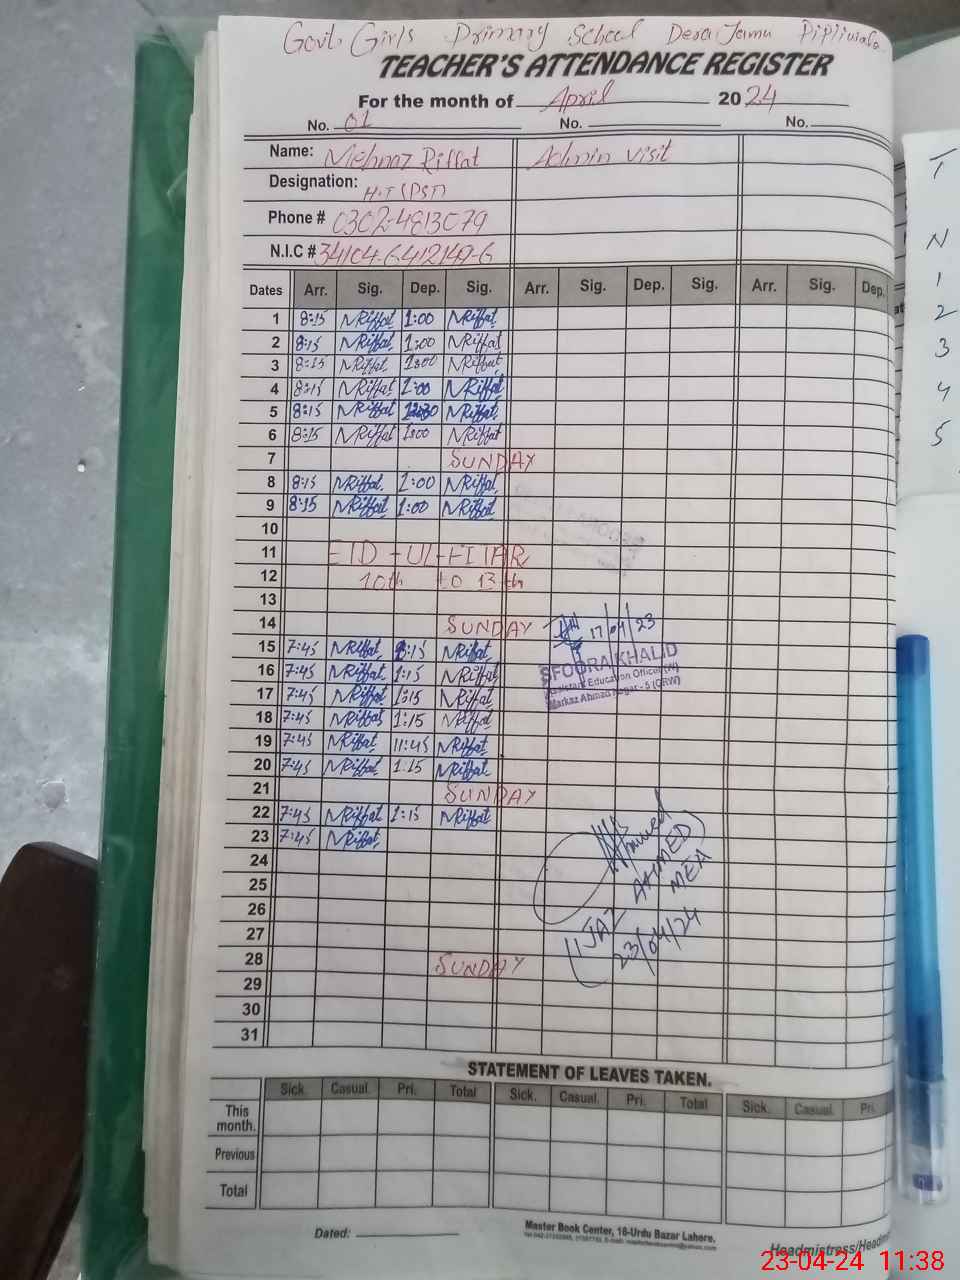 Govt. Girls Primary School Dera Jamu Pipliwala
TEACHER'S ATTENDANCE REGISTER
For the month of April 2024
No. 01 No. No.
Name: Mehnaz Riffat Admin visit
Designation: H.T (PST)
Phone # 0302-4813079
N.I.C # 34104-6412149-6
Dates Arr. Sig. Dep. Sig. Arr. Sig. Dep. Sig. Arr. Sig. Dep.
1 8:15 NRiffat 1:00 NRiffat
2 8:15 NRiffat 1:00 NRiffat
3 8:15 NRiffat 1:00 NRiffat
4 8:15 NRiffat 1:00 NRiffat
5 8:15 NRiffat NRiffat
6 8:15 NRiffat 1:00 NRiffat
7 SUNDAY
8 8:15 NRiffat 1:00 NRiffat
9 8:15 NRiffat 1:00 NRiffat
10
11 EID-UL-FITAR
12 10th to 13th
13
14 SUNDAY
17/04/23
15 7:45 NRiffat 1:15 NRiffat
16 7:45 NRiffat 1:15 NRiffat
SFOORA KHALID
Assistant Education Officer (W)
Markaz Ahmad Nagar - 5 (GRW)
17 7:45 NRiffat 1:15 NRiffat
18 7:45 NRiffat 1:15 NRiffat
19 7:45 NRiffat 11:45 NRiffat
20 7:45 NRiffat 1:15 NRiffat
21 SUNDAY
22 7:45 NRiffat 1:15 NRiffat
23 7:45 NRiffat
24
25
26
27
28 SUNDAY
29
30
31
Ahmed
IJAZ AHMED
MEA
23/04/24
STATEMENT OF LEAVES TAKEN.
Sick. Casual. Pri. Total Sick. Casual. Pri. Total Sick. Casual. Pri.
This month.
Previous
Total
Dated:
Master Book Center, 16-Urdu Bazar Lahore.
Headmistress/Headm
T
N
1
2
3
4
5
23-04-24 11:38